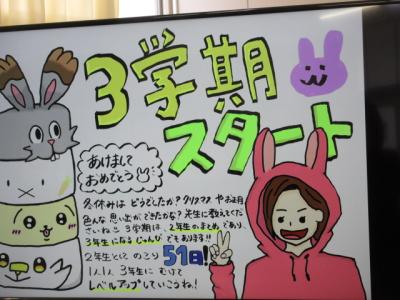 3学期
スタート
あけまして
おめでとう
冬休みは どうでしたか?クリスマス やお正月
色んな 思い出ができたかな?先生に教えてくだ
さいねっ 3学期は、2年生のまとめであり、
3年生になるじゅんびでもあります!!
2年生として のこり 51日!
1人1人 3年生に むけて
レベルアップしていこうね!